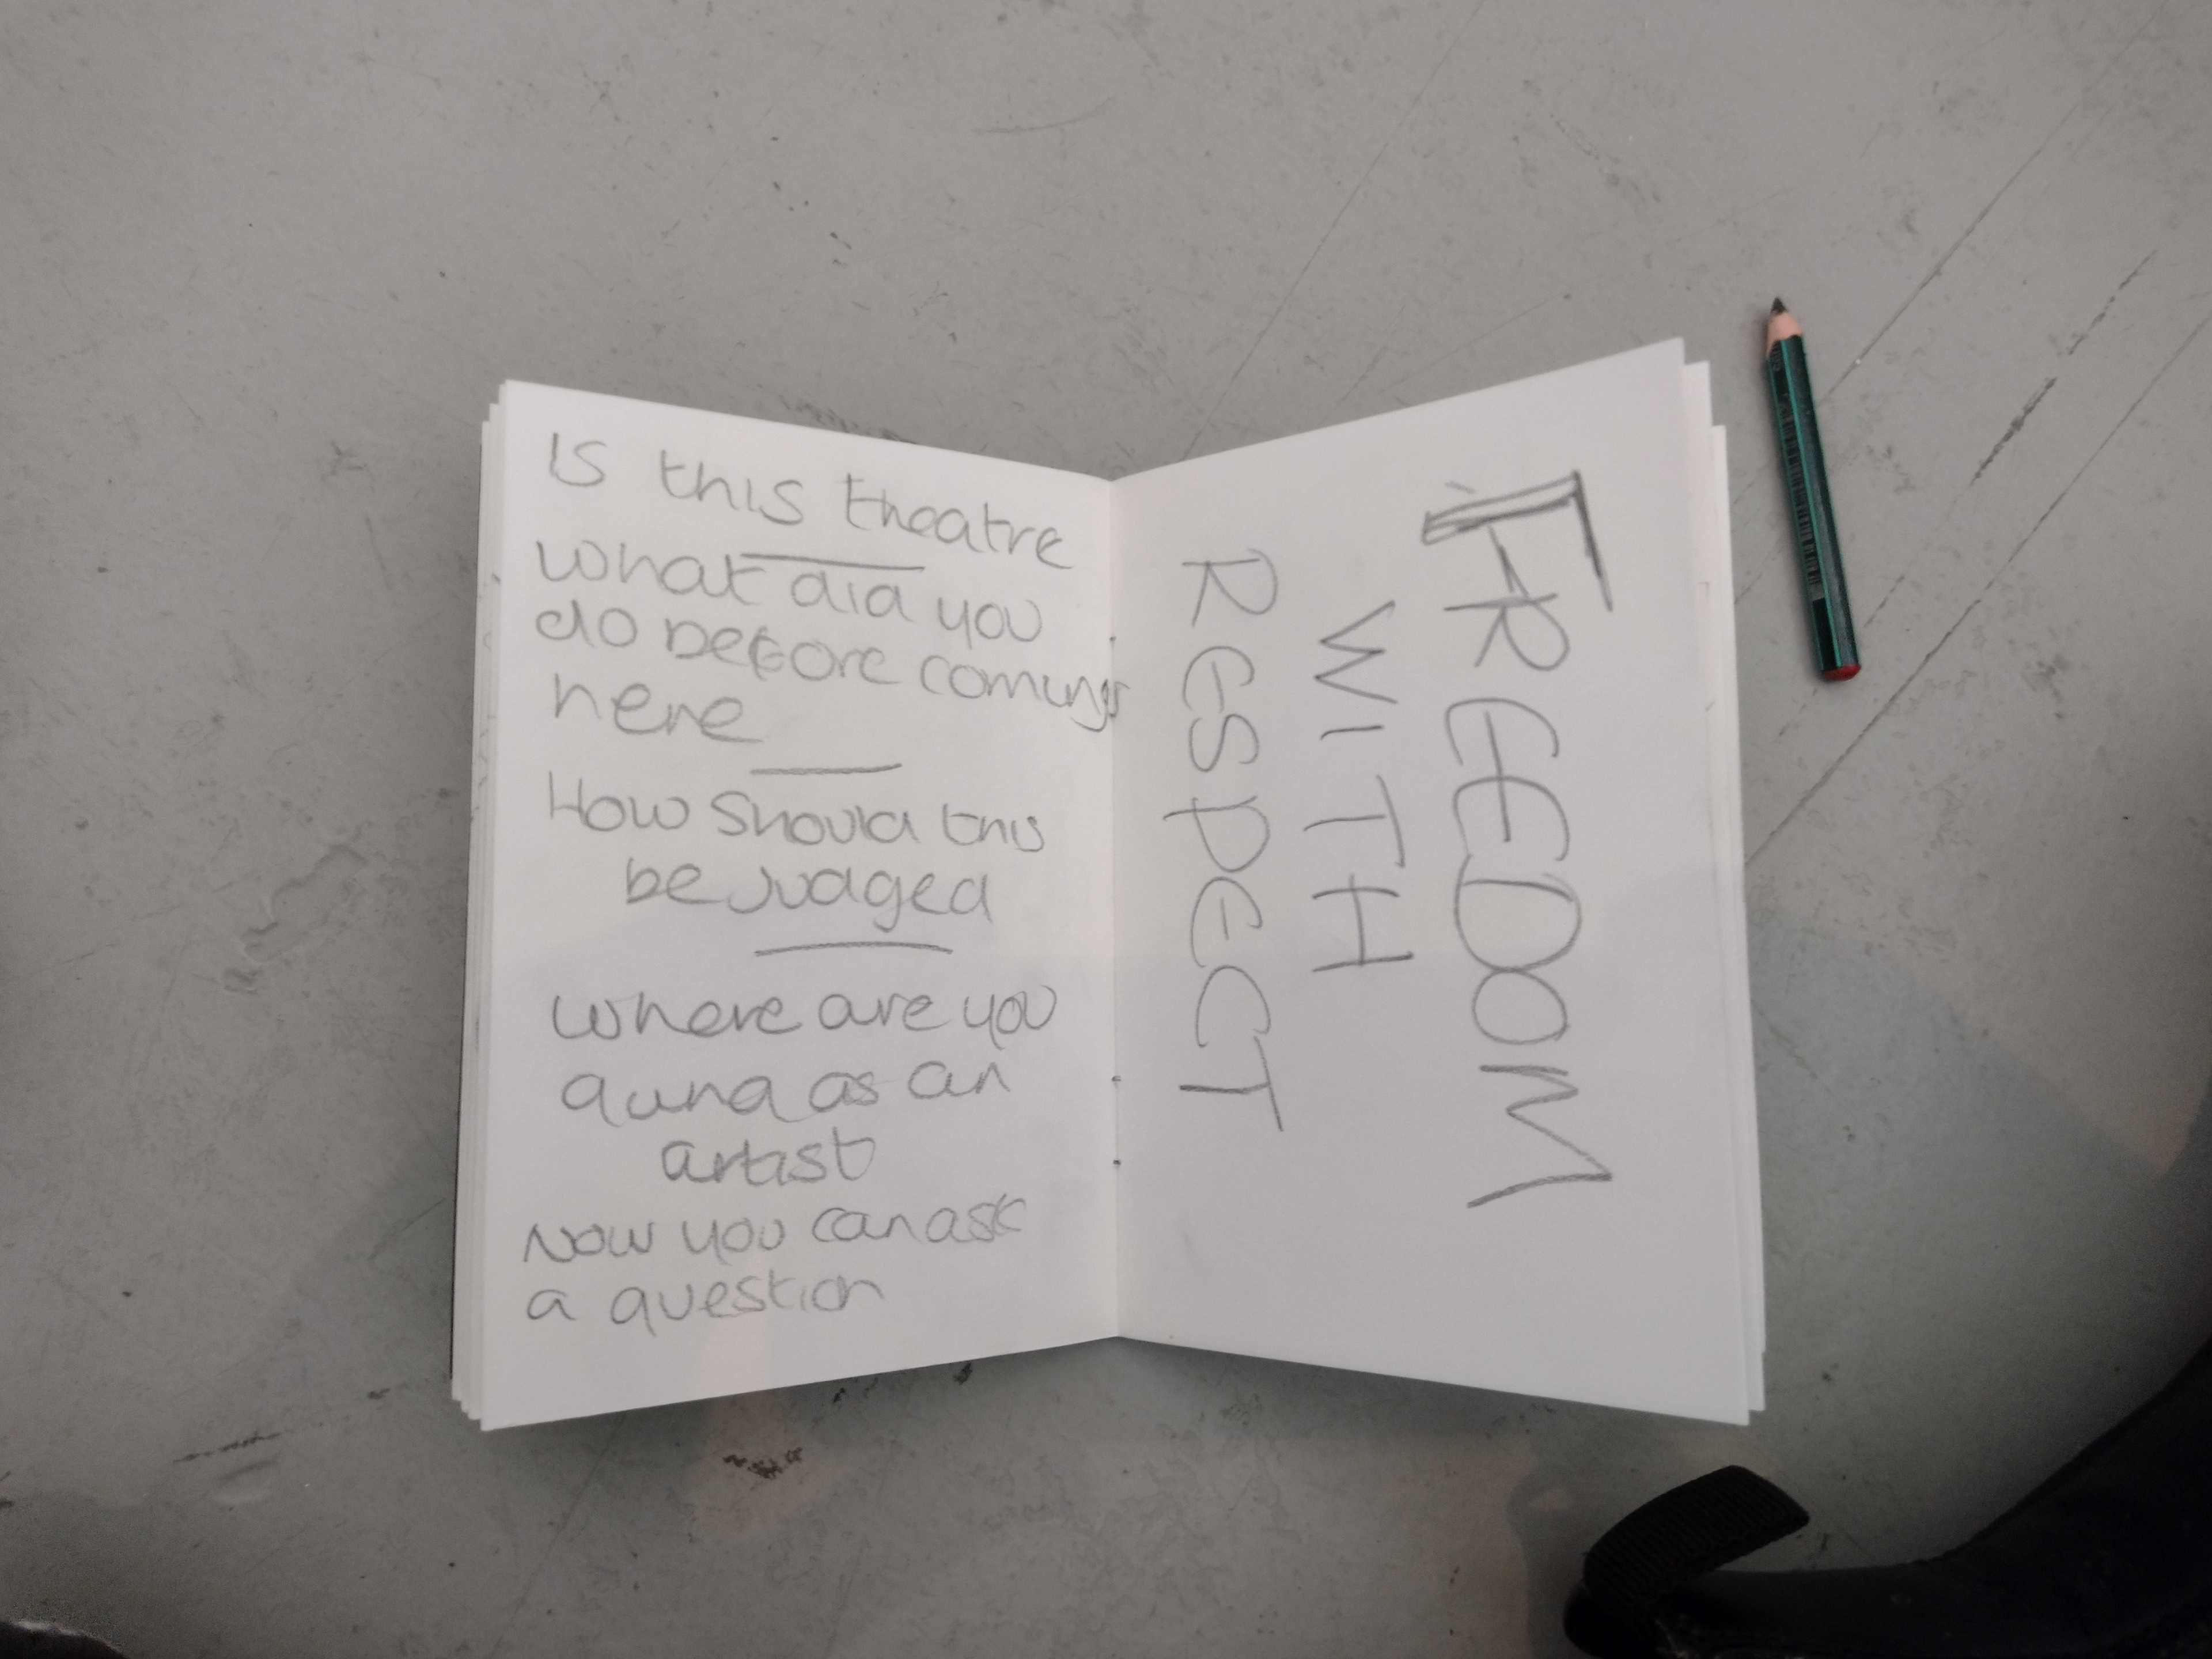 Is this theatre
What did you
do before coming
here
How should this
be judged
Where are you
as an
artist
Now you can ask
a question
FREEDOM
WITH
RESPECT